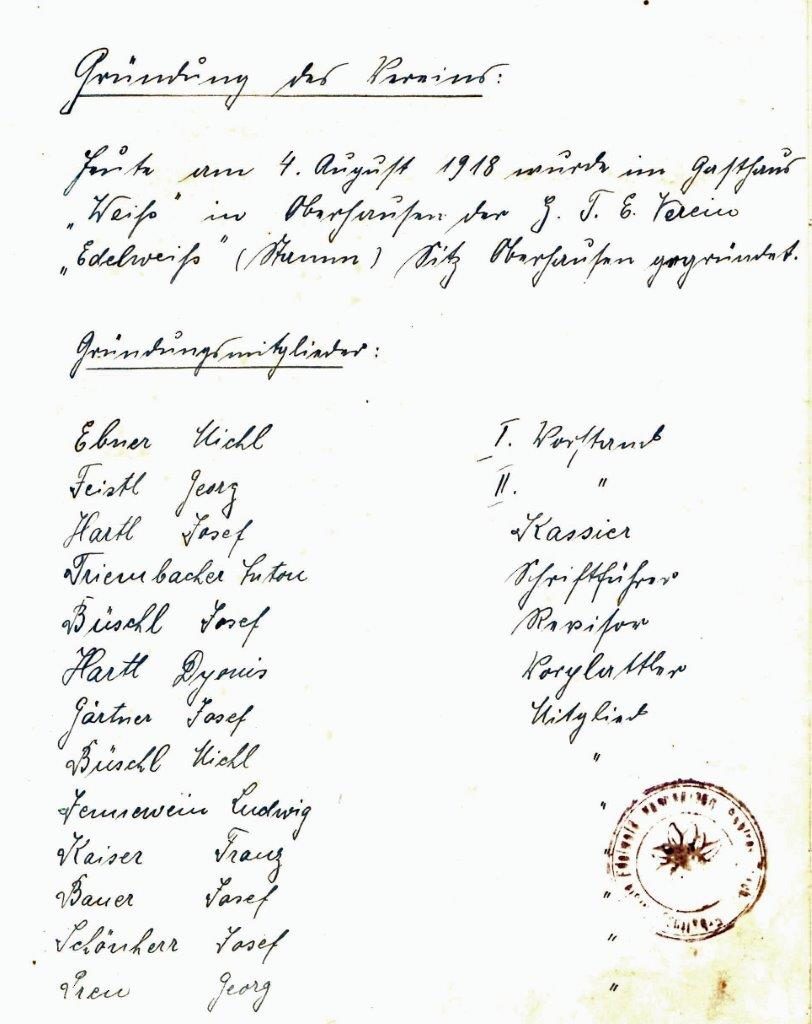 Gründung des Vereins:
Heute am 4. August 1918 wurde im Gasthaus
„Weiß" in Oberhausen der G. T. E. Verein
„Edelweiß" (Stamm) Sitz Oberhausen gegründet.
Gründungsmitglieder:
Ebner Michl I. Vorstand
Feistl Georg II. "
Hartl Josef Kassier
Triembacher Anton Schriftführer
Büschl Josef Revisor
Hartl Dyonis Vorplattler
Gärtner Josef Mitglied
Büschl Michl "
Jennewein Ludwig "
Kaiser Franz "
Bauer Josef "
Schönherr Josef "
Georg "
Edelweiß